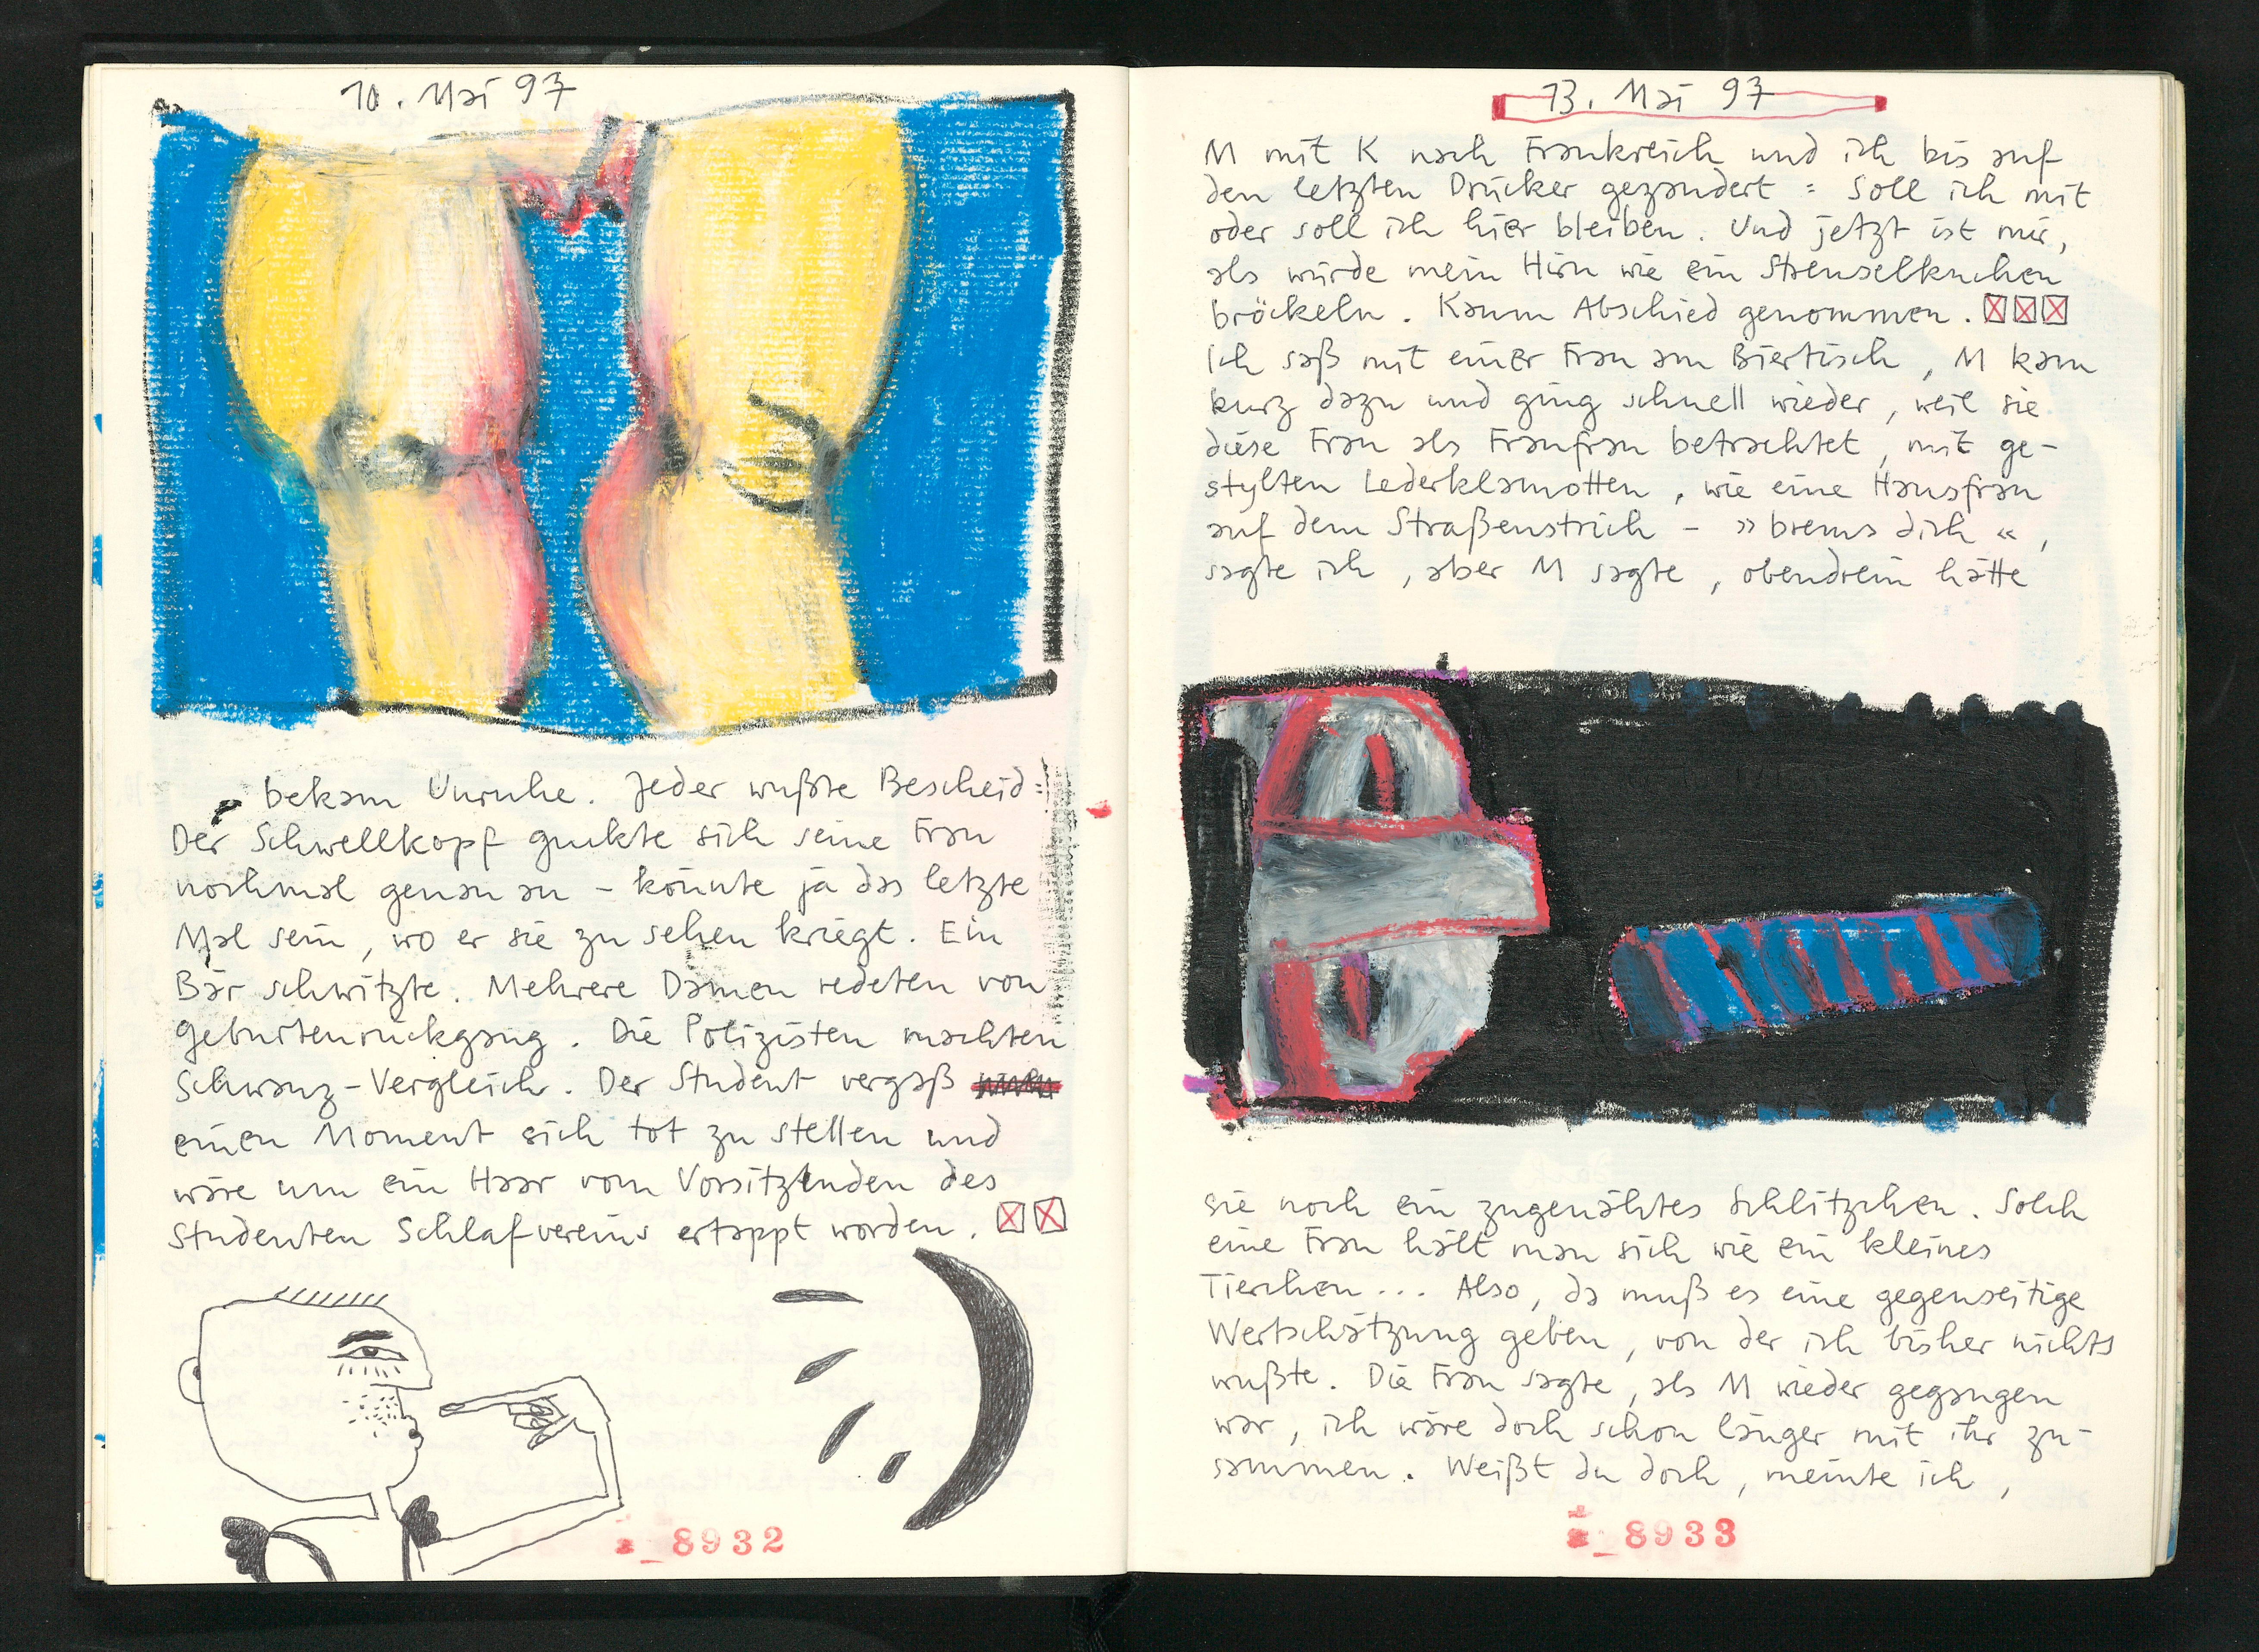 10. Mai 97
bekam Unruhe. Jeder wußte Bescheid:
Der Schwellkopf guckte sich seine Frau
nochmal genau an – könnte ja das letzte
Mal sein, wo er sie zu sehen kriegt. Ein
Bär schwitzte. Mehrere Damen redeten von
Geburtenrückgang. Die Polizisten machten
Schwanz-Vergleich. Der Student vergaß
einen Moment sich tot zu stellen und
wäre um ein Haar vom Vorsitzenden des
Studenten Schlafvereins ertappt worden.
8932
13. Mai 97
M mit K nach Frankreich und ich bis auf
den letzten Drücker gezaudert: Soll ich mit
oder soll ich hier bleiben. Und jetzt ist mir,
als würde mein Hirn wie ein Streuselkuchen
bröckeln. Kaum Abschied genommen.
Ich saß mit einer Frau am Biertisch, M kam
kurz dazu und ging schnell wieder, weil sie
diese Frau als Fraufrau betrachtet, mit ge-
stylten Lederklamotten, wie eine Hausfrau
auf dem Straßenstrich – »brems dich«,
sagte ich, aber M sagte, obendrein hätte
sie noch ein zugenähtes Schlitzchen. Solch
eine Frau hält man sich wie ein kleines
Tierchen... Also, da muß es eine gegenseitige
Wertschätzung geben, von der ich bisher nichts
wußte. Die Frau sagte, als M wieder gegangen
war, ich wäre doch schon länger mit ihr zu-
sammen. Weißt du doch, meinte ich,
8933